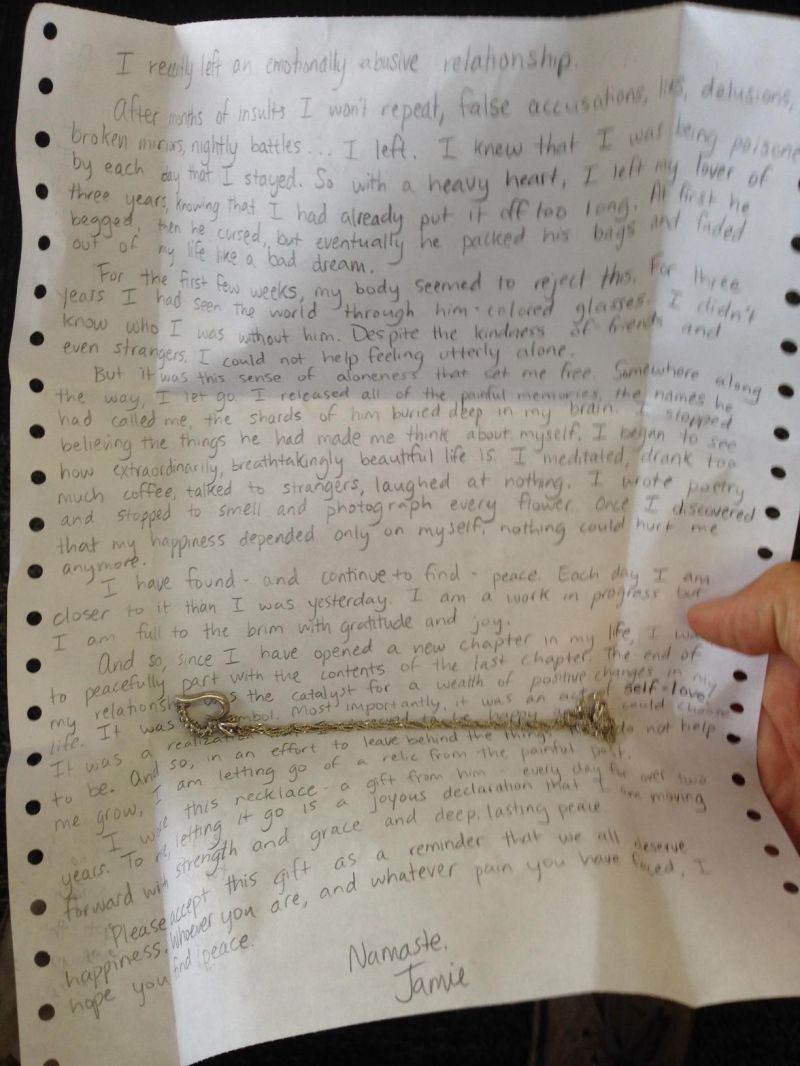 I recently left an emotionally abusive relationship.
After months of insults I won't repeat, false accusations, lies, delusions,
broken mirrors, nightly battles... I left. I knew that I was being poisone
by each day that I stayed. So with a heavy heart, I left my lover of
three years, knowing that I had already put it off too long. At first he
begged, then he cursed, but eventually he packed his bags and faded
out of my life like a bad dream.
For the first few weeks, my body seemed to reject this. For three
years I had seen the world through him-colored glasses. I didn't
know who I was without him. Despite the kindness of friends and
even strangers, I could not help feeling utterly alone.
But it was this sense of aloneness that set me free. Somewhere along
the way, I let go. I released all of the painful memories, the names he
had called me, the shards of him buried deep in my brain. I stopped
believing the things he had made me think about myself. I began to see
how extraordinarily, breathtakingly beautiful life is. I meditated, drank too
much coffee, talked to strangers, laughed at nothing. I wrote poetry
and stopped to smell and photograph every flower. Once I discovered
that my happiness depended only on myself, nothing could hurt me
anymore.
I have found - and continue to find - peace. Each day I am
closer to it than I was yesterday. I am a work in progress but
I am full to the brim with gratitude and joy.
And so, since I have opened a new chapter in my life, I
to peacefully part with the contents of the last chapter. The end of
my relationship was the catalyst for a wealth of positive changes in my
life. It was symbol. Most importantly, it was an act of self-love.
It was a to be happy could choose
to be. And so, in an effort to leave behind the things do not help
me grow, I am letting go of a relic from the painful past.
I wore this necklace - a gift from him - every day for over two
years. To me, letting it go is a joyous declaration that I am moving
forward with strength and grace and deep, lasting peace
Please accept this gift as a reminder that we all deserve
happiness. Whoever you are, and whatever pain you have faced, I
hope you find peace.
Namaste.
Jamie